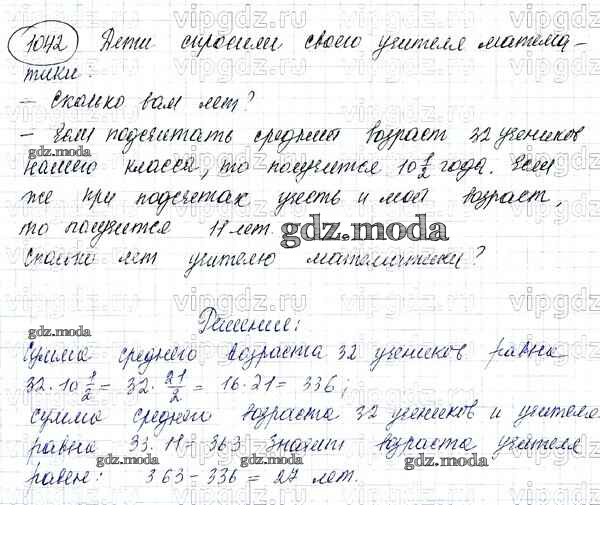 1042 Дети спросили своего учителя матема-
тики:
- Сколько вам лет?
- Если подсчитать средний возраст 32 учеников
нашего класса, то получится 10 1/2 года. Если
же при подсчетах учесть и мой возраст,
то получится 11 лет.
Сколько лет учителю математики?
Решение:
Сумма среднего возраста 32 учеников равна
32·10 1/2 = 32·21/2 = 16·21 = 336;
Сумма среднего возраста 32 учеников и учителя
равна 33·11=363 Значит возраста учителя
равен: 363-336 = 27 лет.
gdz.moda
gdz.moda
gdz.moda
gdz.moda
gdz.moda
gdz.moda
gdz.moda
vipgdz.ru